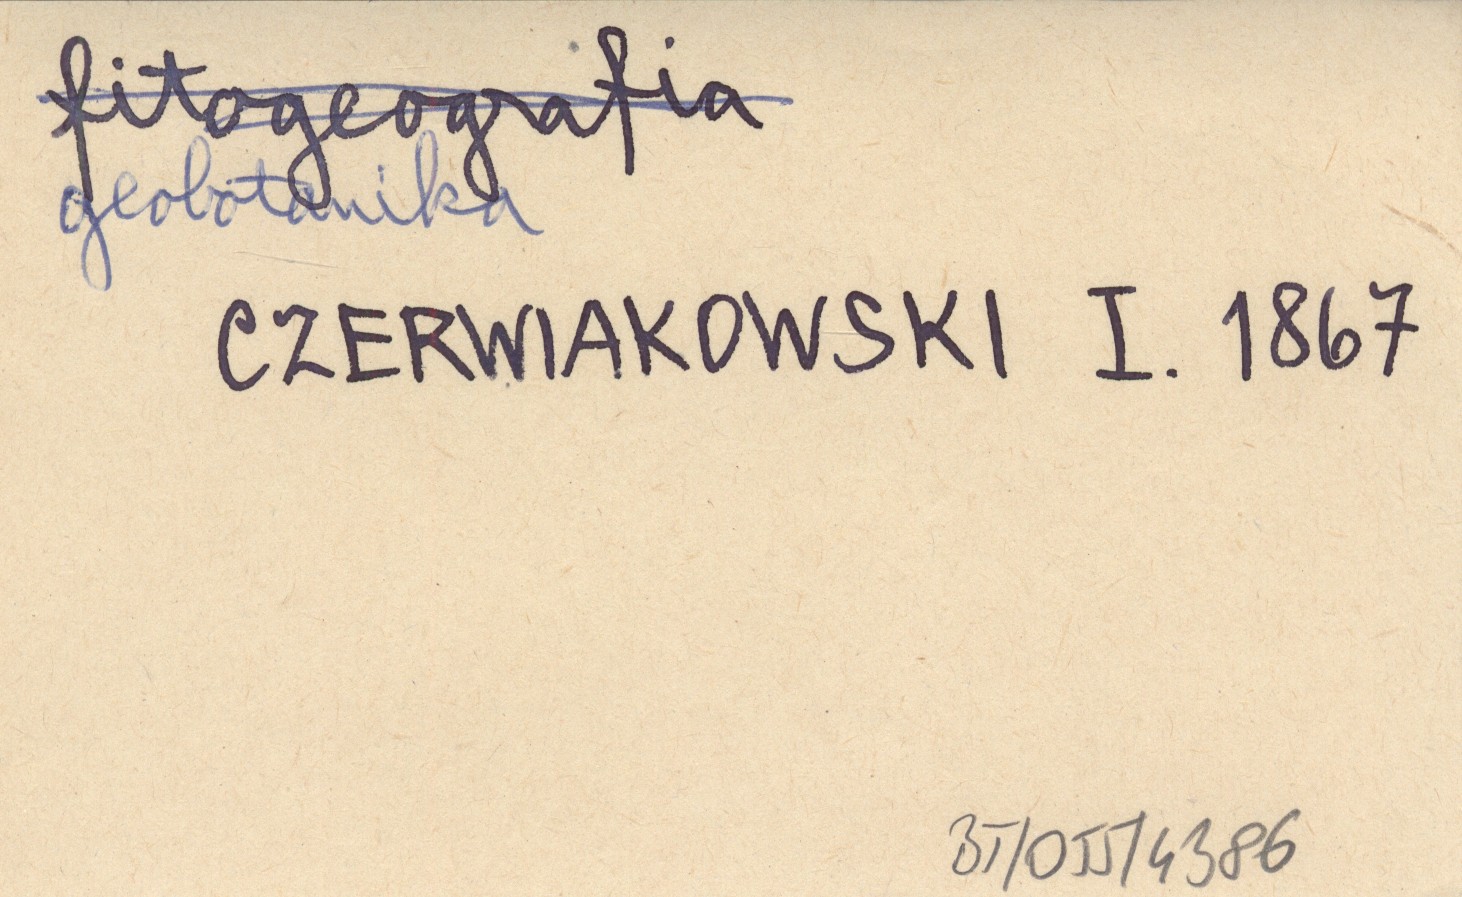 fitogeografia
geobotanika
CZERWIAKOWSKI I. 1867
BT/OII/4386